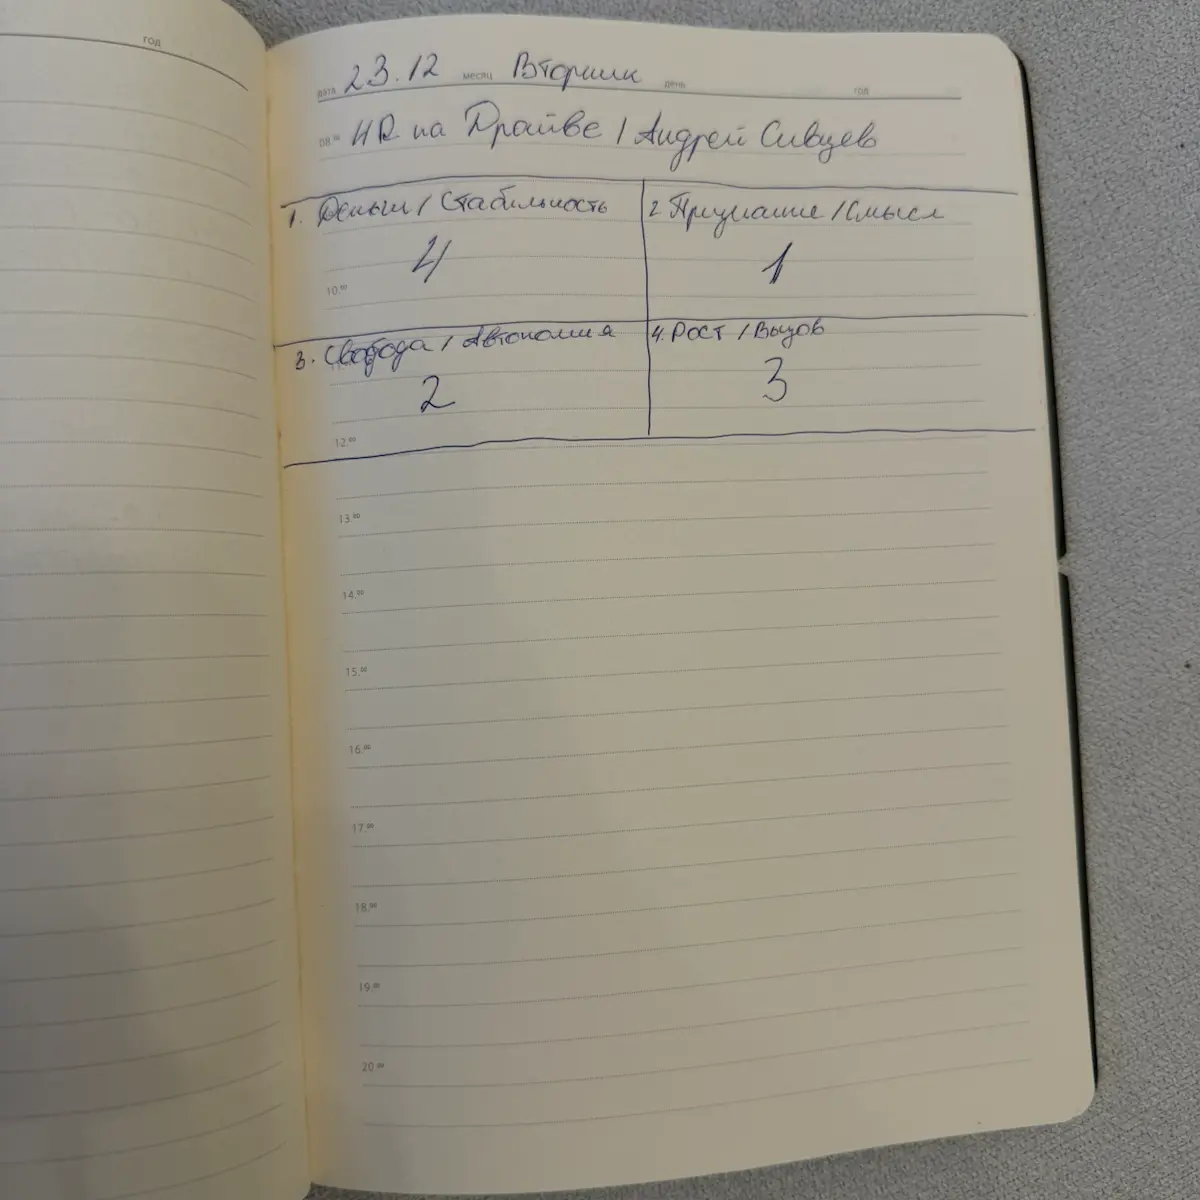 год
дата 23.12 месяц Вторник день год
08.00 HR на Драйве / Андрей Сивцев
1. Деньги / Стабильность 2. Признание / Смысл
4 1
10.00
3. Свобода / Автономия 4. Рост / Вызов
2 3
12.00
13.00
14.00
15.00
16.00
17.00
18.00
19.00
20.00